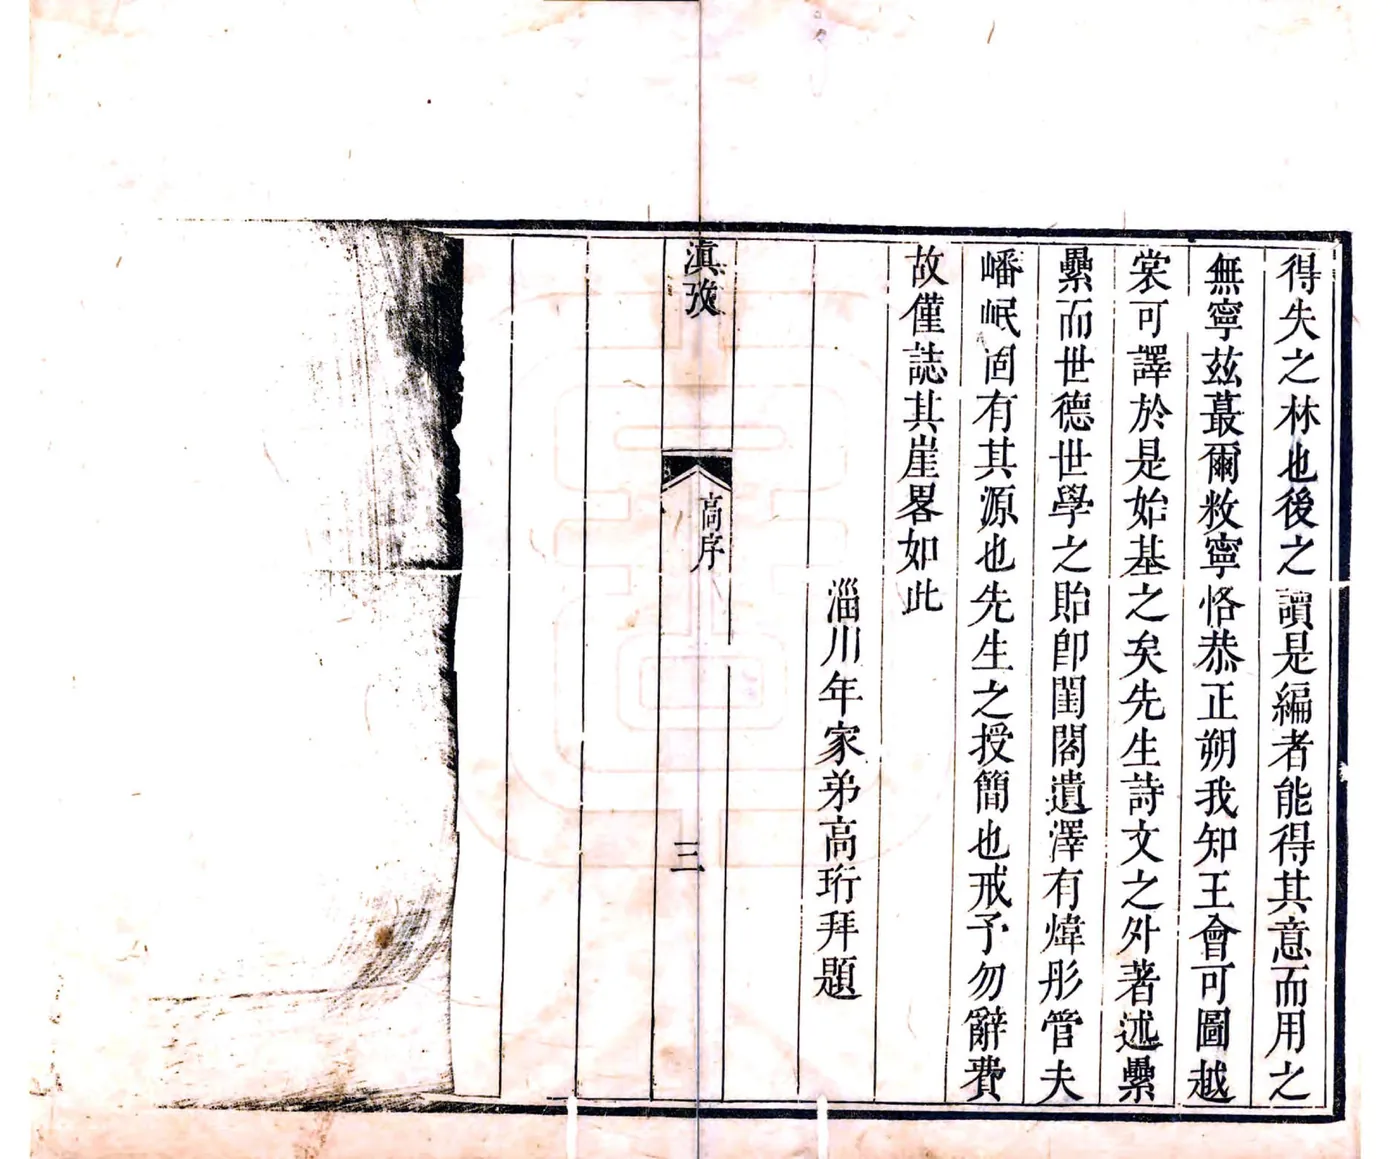 得失之林也後之讀是編者能得其意而用之
無寧茲蕞爾敉寧恪恭正朔我知王會可圖越
裳可譯於是始基之矣先生詩文之外著述纍
纍而世德世學之貽卽閨閤遺澤有煒彤管夫
嶓岷固有其源也先生之授簡也戒予勿辭費
故僅誌其崖畧如此
淄川年家弟高珩拜題
滇攷
高序
三